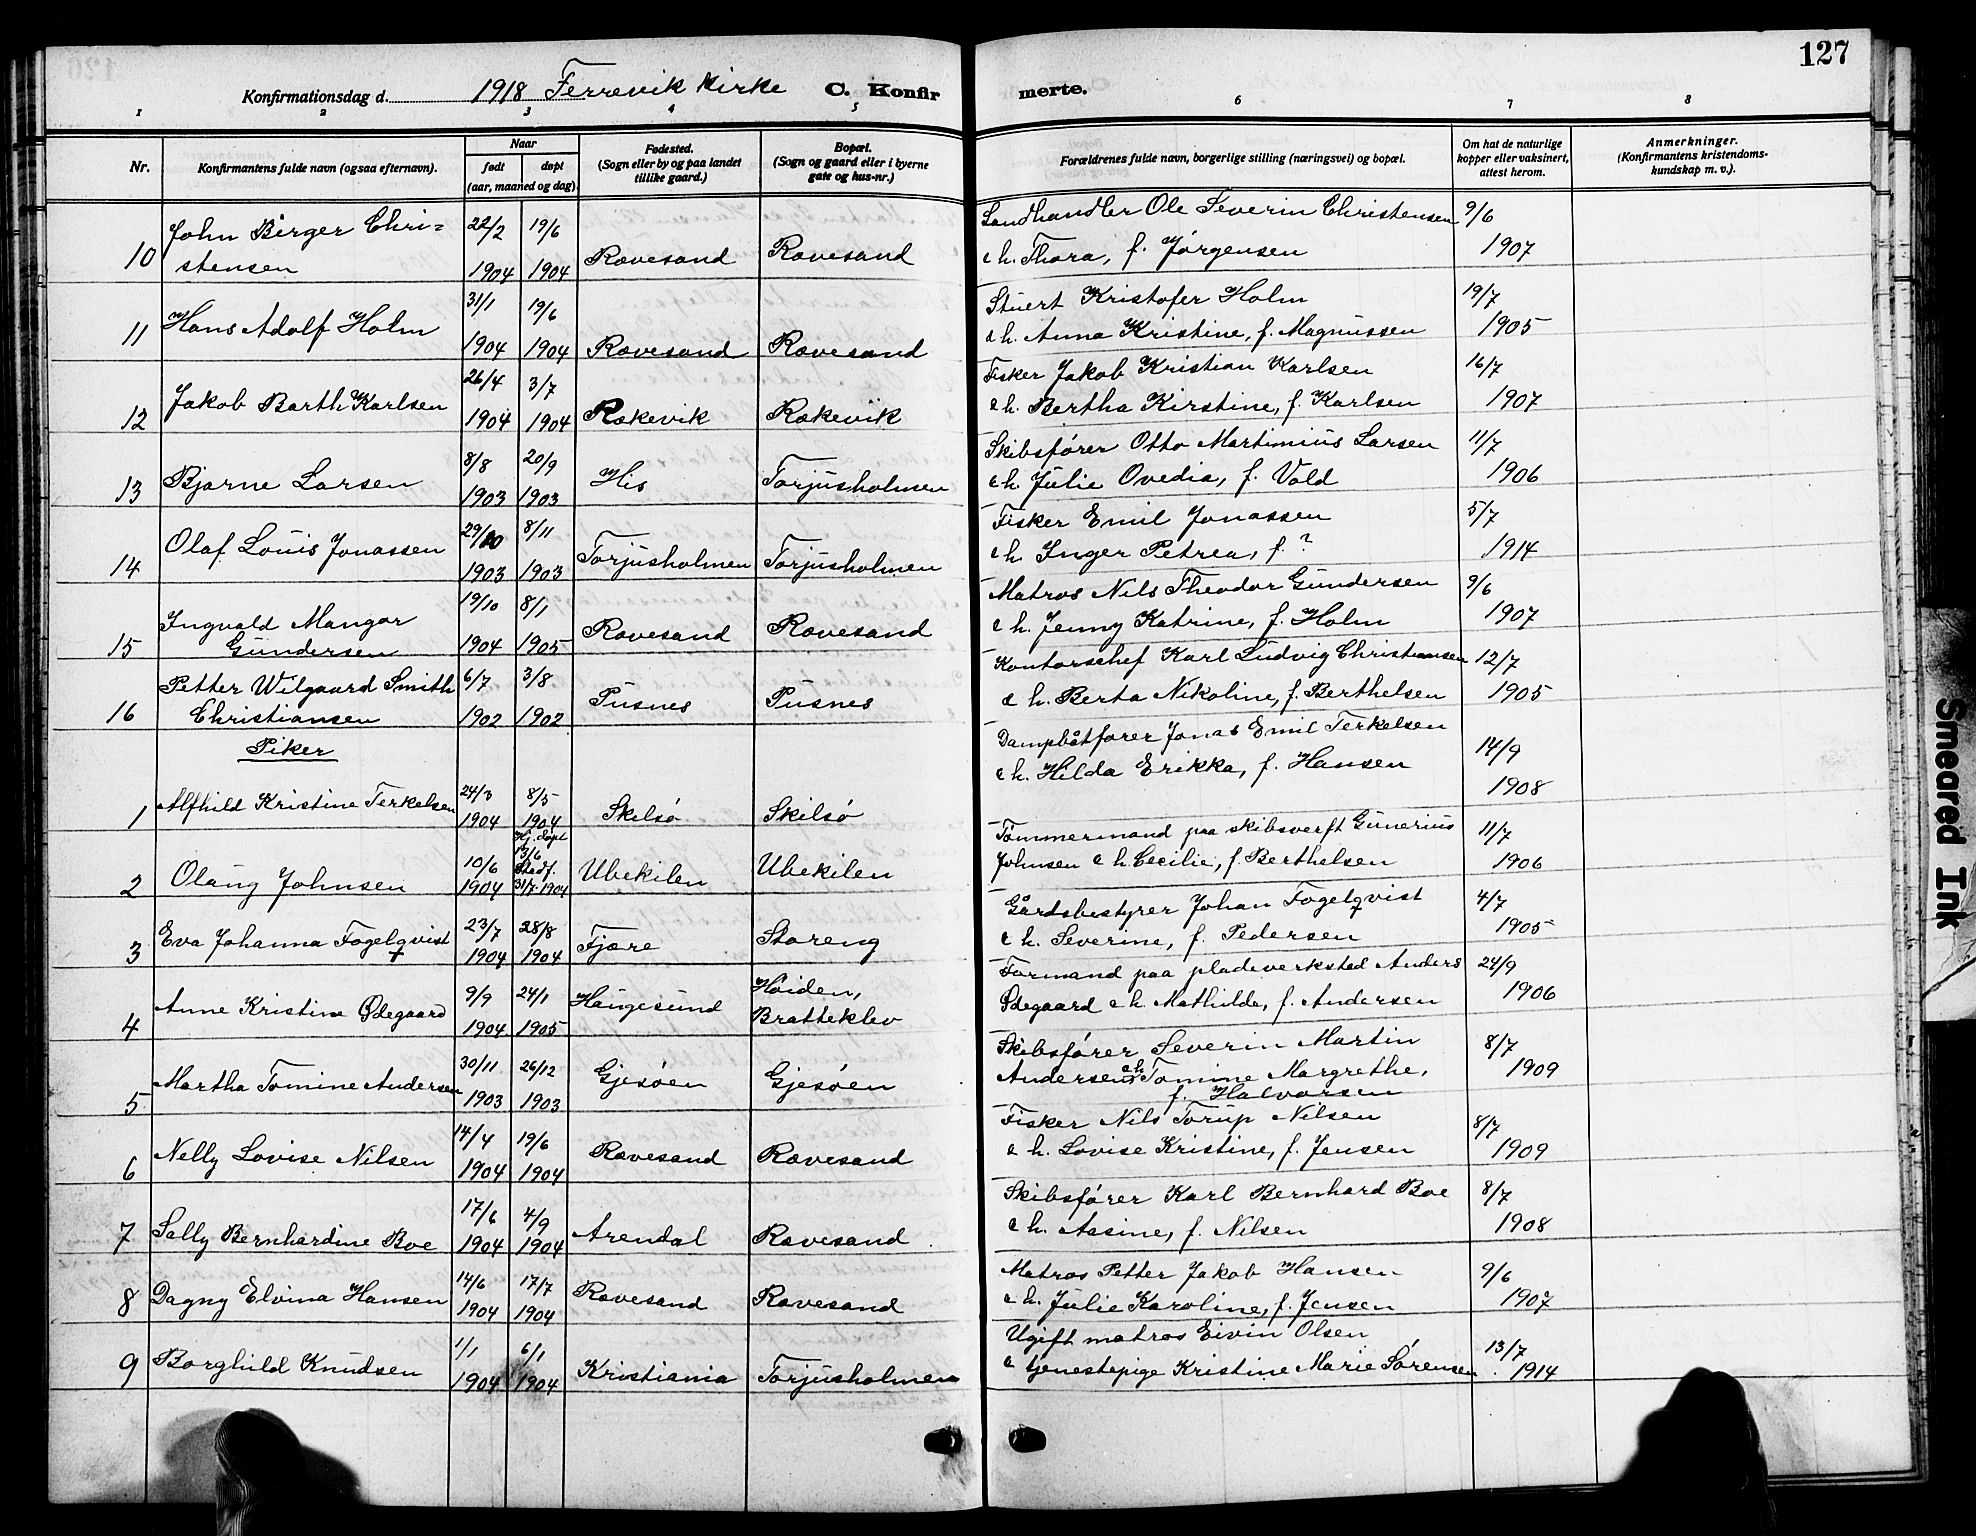 127
Konfirmationsdag d. 1918 Færevik Kirke C. Konfirmerte.
1 2 3 4 5 6 7 8
Nr.
Konfirmantens fulde navn (ogsaa efternavn).
Naar
født døpt
(aar, maaned og dag)
Fødested.
(Sogn eller by og paa landet
tillike gaard.)
Bopæl.
(Sogn og gaard eller i byerne
gate og hus-nr.)
Forældrenes fulde navn, borgerlige stilling (næringsvei) og bopæl.
Om hat de naturlige
kopper eller vaksinert,
attest herom.
Anmerkninger.
(Konfirmantens kristendoms-
kundskap m. v.).
10 John Birger Chri=stensen 22/2 1904 19/6 1904 Rævesand Rævesand Landhandler Ole Severin Christensen & h. Thora, f. Jørgensen 9/6 1907
11 Hans Adolf Holm 31/1 1904 19/6 1904 Rævesand Rævesand Stuert Kristofer Holm & h. Anna Kristine, f. Magnussen 19/7 1905
12 Jakob Barth Karlsen 26/4 1904 3/7 1904 Rækevik Rækevik Fisker Jakob Kristian Karlsen & h. Bertha Kirstine, f. Karlsen 16/7 1907
13 Bjarne Larsen 8/8 1903 20/9 1903 His Torjusholmen Skibsfører Otto Martinius Larsen & h. Julie Ovedia, f. Vold 11/7 1906
14 Olaf Louis Jonassen 29/10 1903 8/11 1903 Torjusholmen Torjusholmen Fisker Emil Jonassen & h Inger Petrea, f. ? 5/7 1914
15 Ingvald Mangor Gundersen 19/10 1904 8/1 1905 Rævesand Rævesand Matros Nils Theodor Gundersen & h. Jenny Katrine, f. Holm 9/6 1907
16 Petter Wilgaard Smith Christiansen 6/7 1902 3/8 1902 Pusnes Pusnes Kontorschef Karl Ludvig Christiansen & h. Berta Nikoline, f. Berthelsen 12/7 1905
Piker
1 Alfhild Kristine Terkelsen 24/3 1904 8/5 1904 Skilsø Skilsø Dampbåtfører Jonas Emil Terkelsen & h. Hilda Erikka, f. Hansen 14/9 1908
2 Olaug Johnsen 10/6 1904 Hj. døpt 13/6 Stadf. 31/7 1904 Ubekilen Ubekilen Tømmermand paa skibsverft Gunerius Johnsen & h. Cecilie, f. Berthelsen 11/7 1906
3 Eva Johanna Fogelqvist 23/7 1904 28/8 1904 Fjære Støreng Gårdsbestyrer Johan Fogelqvist & h. Severine, f. Pedersen 4/7 1905
4 Anne Kristine Ødegaard 9/9 1904 24/1 1905 Haugesund Høiden, Bratteklev Formand paa pladeverksted Anders Ødegaard & h. Mathilde, f. Andersen 24/9 1906
5 Martha Tomine Andersen 30/11 1903 26/12 1903 Gjesøen Gjesøen Skibsfører Severin Martin Andersen & h. Tomine Margrethe, f. Halvorsen 8/7 1909
6 Nelly Lovise Nilsen 14/4 1904 19/6 1904 Rævesand Rævesand Fisker Nils Torup Nilsen & h. Lovise Kristine, f. Jensen 8/7 1909
7 Sally Bernhardine Boe 17/6 1904 4/9 1904 Arendal Rævesand Skibsfører Karl Bernhard Boe & h. Aasine, f. Nilsen 8/7 1908
8 Dagny Elvina Hansen 14/6 1904 17/7 1904 Rævesand Rævesand Matros Petter Jakob Hansen & h. Julie Karoline, f. Jensen 9/6 1907
9 Borghild Knudsen 1/1 1904 6/1 1904 Kristiania Torjusholmen Ugift matros Eivin Olsen & tjenestepige Kristine Marie Sørensen 13/7 1914
Smeared Ink